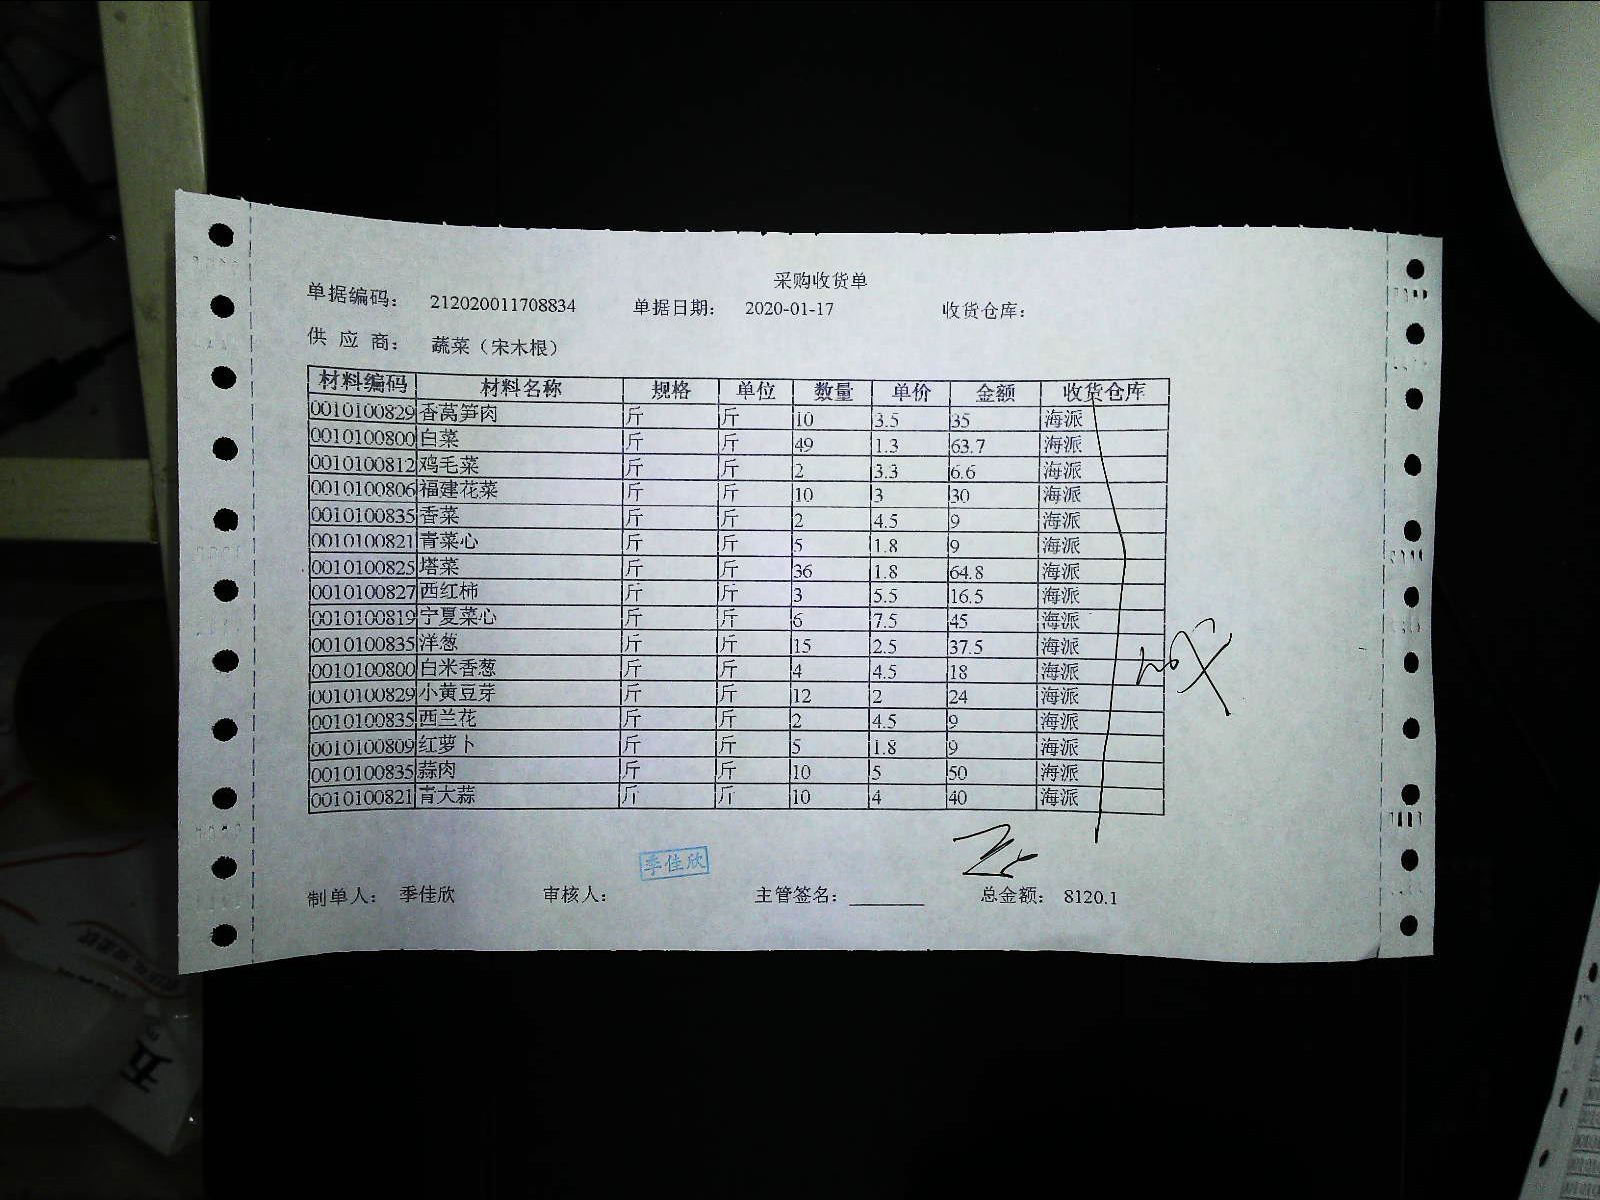 采购收货单
单据编码： 212020011708834 单据日期： 2020-01-17 收货仓库：
供 应 商： 蔬菜（宋木根）
材料编码 材料名称 规格 单位 数量 单价 金额 收货仓库
0010100829 香莴笋肉 斤 斤 10 3.5 35 海派
0010100800 白菜 斤 斤 49 1.3 63.7 海派
0010100812 鸡毛菜 斤 斤 2 3.3 6.6 海派
0010100806 福建花菜 斤 斤 10 3 30 海派
0010100835 香菜 斤 斤 2 4.5 9 海派
0010100821 青菜心 斤 斤 5 1.8 9 海派
0010100825 塔菜 斤 斤 36 1.8 64.8 海派
0010100827 西红柿 斤 斤 3 5.5 16.5 海派
0010100819 宁夏菜心 斤 斤 6 7.5 45 海派
0010100835 洋葱 斤 斤 15 2.5 37.5 海派
0010100800 白米香葱 斤 斤 4 4.5 18 海派
0010100829 小黄豆芽 斤 斤 12 2 24 海派
0010100835 西兰花 斤 斤 2 4.5 9 海派
0010100809 红萝卜 斤 斤 5 1.8 9 海派
0010100835 蒜肉 斤 斤 10 5 50 海派
0010100821 青大蒜 斤 斤 10 4 40 海派
季佳欣
制单人： 季佳欣 审核人： 主管签名： 总金额： 8120.1
五